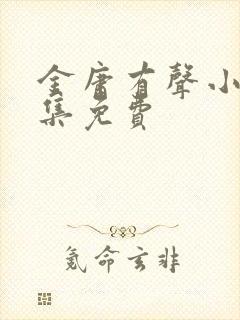 金庸有聲小
集免費
氪命玄非